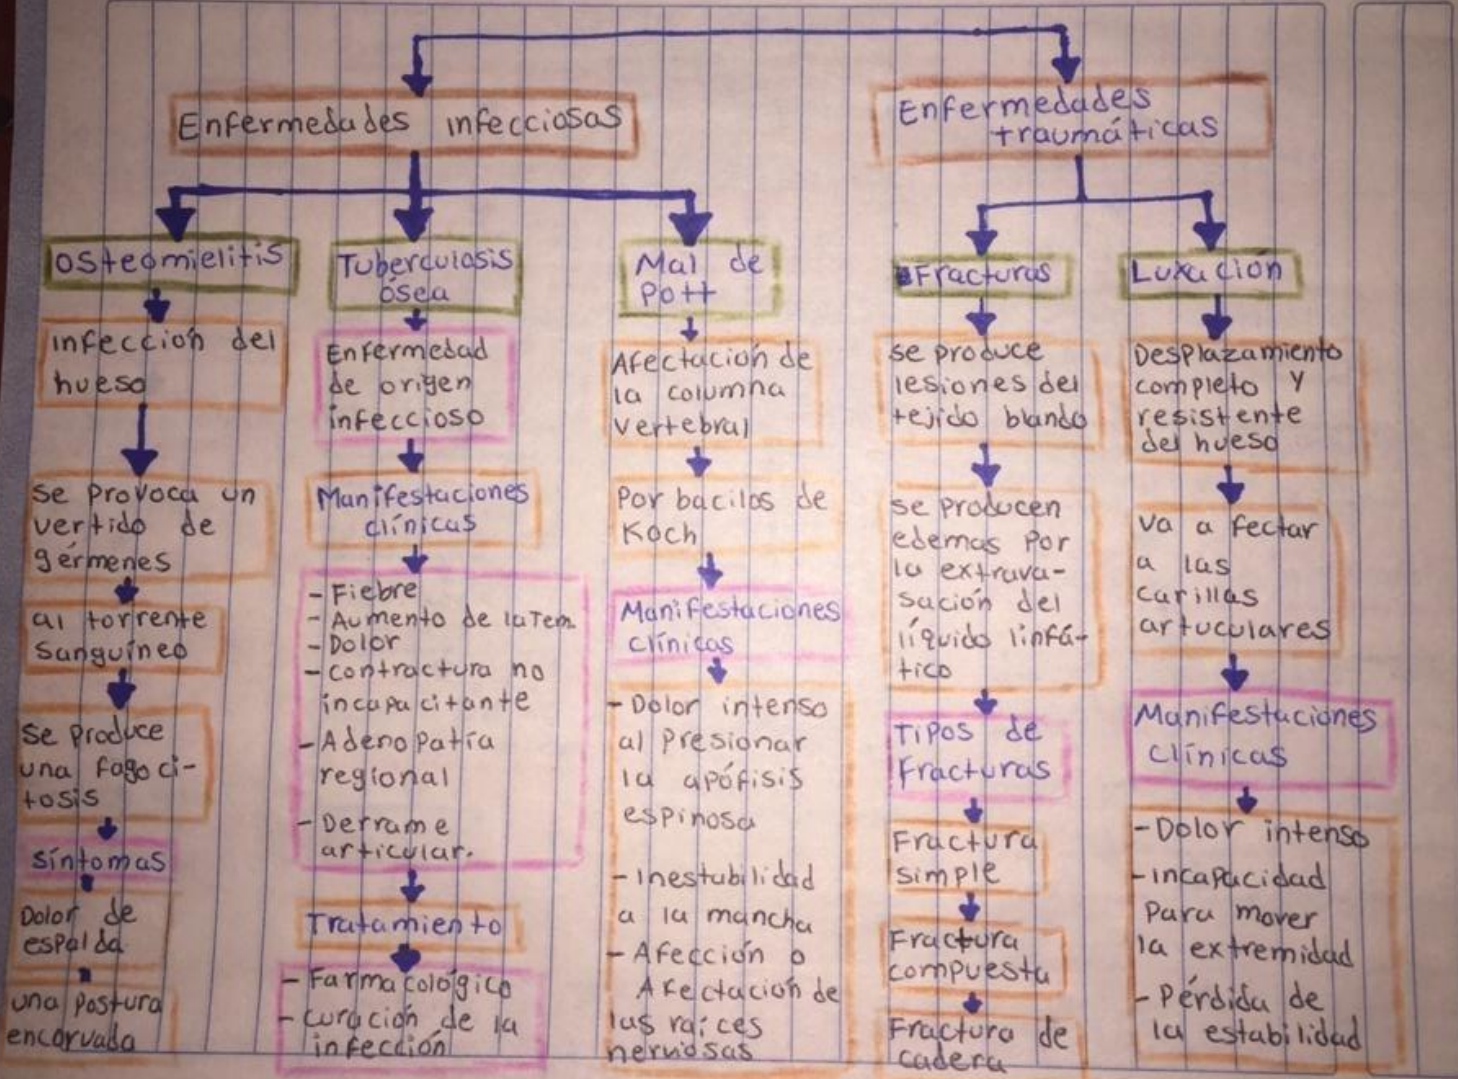 Enfermedades infecciosas
Enfermedades
traumáticas
Osteomielitis
infección del
hueso
se provoca un
vertido de
gérmenes
al torrente
sanguíneo
se produce
una fagoci-
tosis
síntomas
Dolor de
espalda
una postura
encorvada
Tuberculosis
ósea
Enfermedad
de origen
infeccioso
Manifestaciones
clínicas
- Fiebre
- Aumento de la Tem
- Dolor
- contractura no
incapacitante
- Adenopatía
regional
- Derrame
articular.
Tratamiento
- Farmacológico
- curación de la
infección
Mal de
Pott
Afectación de
la columna
vertebral
Por bacilos de
Koch
Manifestaciones
clínicas
- Dolor intenso
al presionar
la apófisis
espinosa
- Inestabilidad
a la mancha
- Afección o
Afectación de
las raíces
nerviosas
Fracturas
se produce
lesiones del
tejido blando
se producen
edemas por
la extrava-
sación del
líquido linfá-
tico
Tipos de
Fracturas
Fractura
simple
Fractura
compuesta
Fractura de
cadera
Luxación
Desplazamiento
completo y
resistente
del hueso
va a fectar
a las
carillas
artuculares
Manifestaciones
clínicas
- Dolor intenso
- incapacidad
para mover
la extremidad
- Pérdida de
la estabilidad